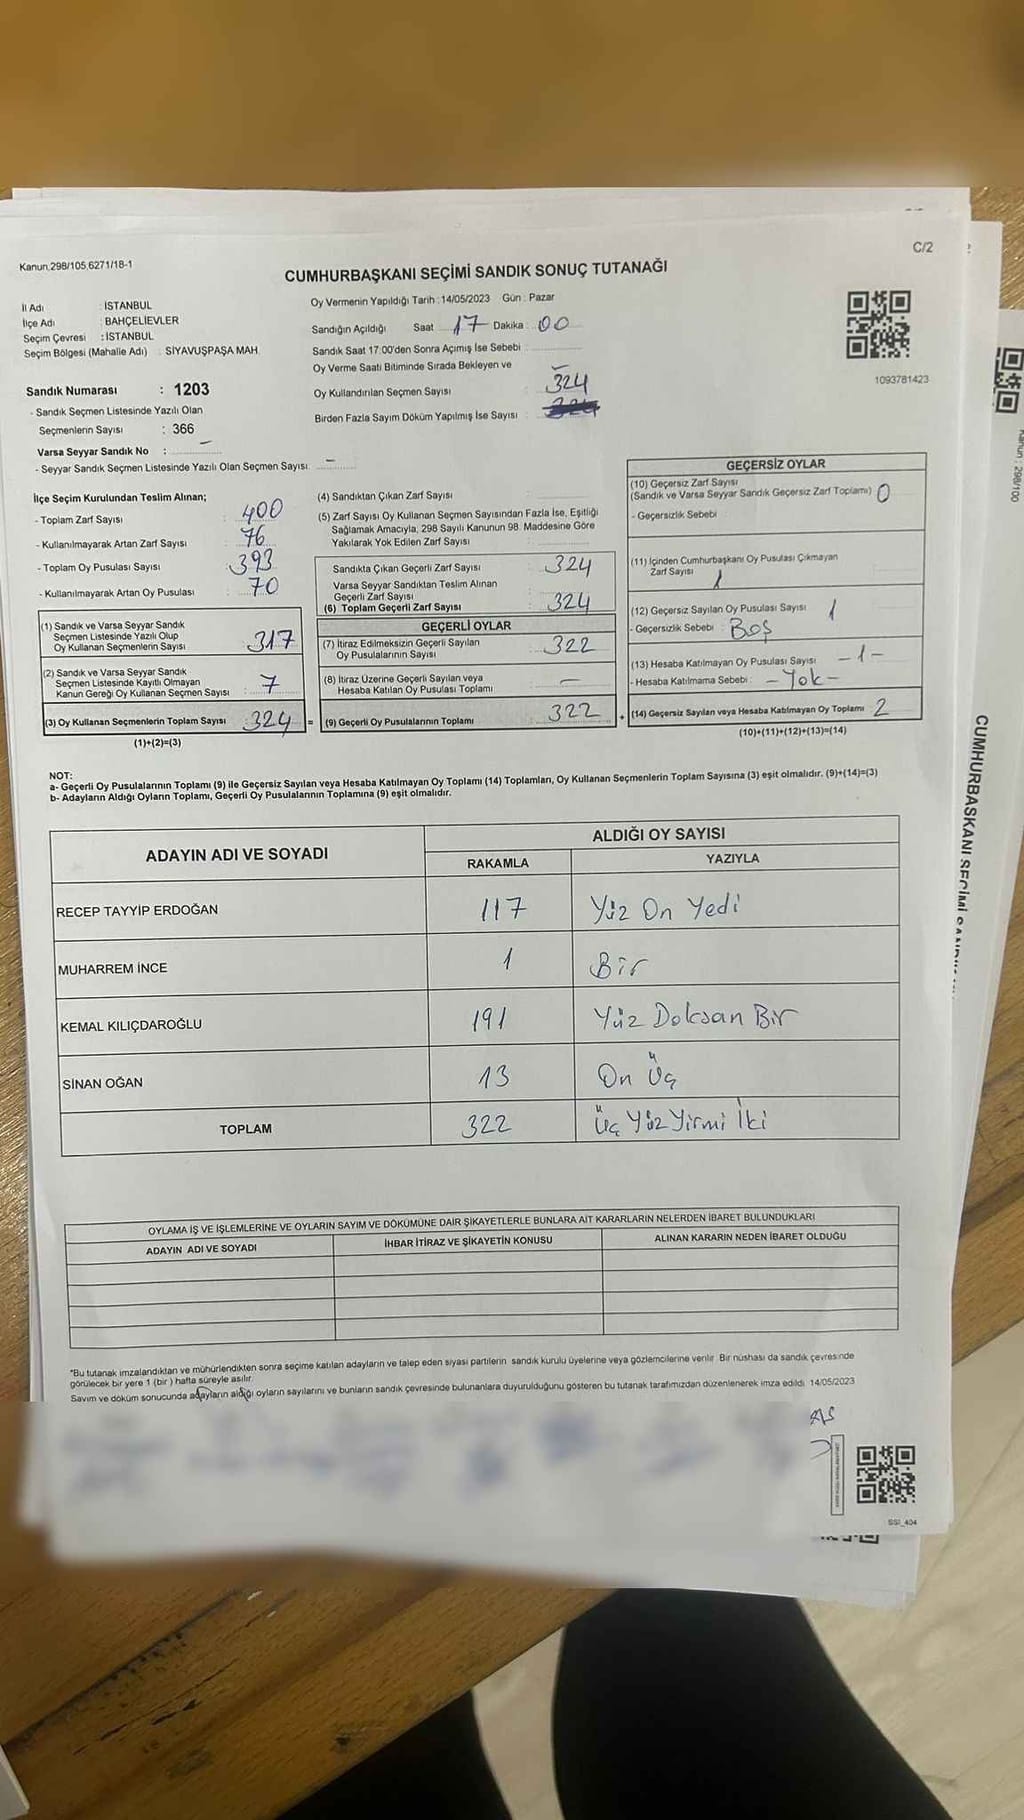 C/2
Kanun.298/105,6271/18-1
CUMHURBAŞKANI SEÇİMİ SANDIK SONUÇ TUTANAĞI
İl Adı : İSTANBUL
İlçe Adı : BAHÇELİEVLER
Seçim Çevresi : İSTANBUL
Seçim Bölgesi (Mahalle Adı) : SİYAVUŞPAŞA MAH.
Oy Vermenin Yapıldığı Tarih : 14/05/2023 Gün : Pazar
Sandığın Açıldığı Saat 17 Dakika : 00
Sandık Saat 17.00'den Sonra Açımış İse Sebebi :
Oy Verme Saati Bitiminde Sırada Bekleyen ve
Oy Kullandırılan Seçmen Sayısı : 324
Birden Fazla Sayım Döküm Yapılmış İse Sayısı :
1093781423
Sandık Numarası : 1203
- Sandık Seçmen Listesinde Yazılı Olan
Seçmenlerin Sayısı : 366
Varsa Seyyar Sandık No : -
- Seyyar Sandık Seçmen Listesinde Yazılı Olan Seçmen Sayısı : -
İlçe Seçim Kurulundan Teslim Alınan;
- Toplam Zarf Sayısı : 400
- Kullanılmayarak Artan Zarf Sayısı : 76
- Toplam Oy Pusulası Sayısı : 393
- Kullanılmayarak Artan Oy Pusulası : 70
(1) Sandık ve Varsa Seyyar Sandık
Seçmen Listesinde Yazılı Olup
Oy Kullanan Seçmenlerin Sayısı : 317
(2) Sandık ve Varsa Seyyar Sandık
Seçmen Listesinde Kayıtlı Olmayan
Kanun Gereği Oy Kullanan Seçmen Sayısı : 7
(3) Oy Kullanan Seçmenlerin Toplam Sayısı : 324 =
(1)+(2)=(3)
(4) Sandıktan Çıkan Zarf Sayısı :
(5) Zarf Sayısı Oy Kullanan Seçmen Sayısından Fazla İse, Eşitliği
Sağlamak Amacıyla, 298 Sayılı Kanunun 98. Maddesine Göre
Yakılarak Yok Edilen Zarf Sayısı :
Sandıkta Çıkan Geçerli Zarf Sayısı : 324
Varsa Seyyar Sandıktan Teslim Alınan
Geçerli Zarf Sayısı :
(6) Toplam Geçerli Zarf Sayısı : 324
GEÇERLİ OYLAR
(7) İtiraz Edilmeksizin Geçerli Sayılan
Oy Pusulalarının Sayısı : 322
(8) İtiraz Üzerine Geçerli Sayılan veya
Hesaba Katılan Oy Pusulası Toplamı : -
(9) Geçerli Oy Pusulalarının Toplamı : 322 +
GEÇERSİZ OYLAR
(10) Geçersiz Zarf Sayısı
(Sandık ve Varsa Seyyar Sandık Geçersiz Zarf Toplamı) : 0
- Geçersizlik Sebebi :
(11) İçinden Cumhurbaşkanı Oy Pusulası Çıkmayan
Zarf Sayısı : 1
(12) Geçersiz Sayılan Oy Pusulası Sayısı : 1
- Geçersizlik Sebebi : Boş
(13) Hesaba Katılmayan Oy Pusulası Sayısı : -1-
- Hesaba Katılmama Sebebi : -Yok-
(14) Geçersiz Sayılan veya Hesaba Katılmayan Oy Toplamı : 2
(10)+(11)+(12)+(13)=(14)
NOT:
a- Geçerli Oy Pusulalarının Toplamı (9) ile Geçersiz Sayılan veya Hesaba Katılmayan Oy Toplamı (14) Toplamları, Oy Kullanan Seçmenlerin Toplam Sayısına (3) eşit olmalıdır. (9)+(14)=(3)
b- Adayların Aldığı Oyların Toplamı, Geçerli Oy Pusulalarının Toplamına (9) eşit olmalıdır.
ADAYIN ADI VE SOYADI ALDIĞI OY SAYISI
RAKAMLA YAZIYLA
RECEP TAYYİP ERDOĞAN 117 Yüz On Yedi
MUHARREM İNCE 1 Bir
KEMAL KILIÇDAROĞLU 191 Yüz Doksan Bir
SİNAN OĞAN 13 On Üç
TOPLAM 322 Üç Yüz Yirmi İki
OYLAMA İŞ VE İŞLEMLERİNE VE OYLARIN SAYIM VE DÖKÜMÜNE DAİR ŞİKAYETLERLE BUNLARA AİT KARARLARIN NELERDEN İBARET BULUNDUKLARI
ADAYIN ADI VE SOYADI İHBAR İTİRAZ VE ŞİKAYETİN KONUSU ALINAN KARARIN NEDEN İBARET OLDUĞU
"Bu tutanak imzalandıktan ve mühürlendikten sonra seçime katılan adayların ve talep eden siyasi partilerin sandık kurulu üyelerine veya gözlemcilerine verilir. Bir nüshası da sandık çevresinde
görülecek bir yere 1 (bir) hafta süreyle asılır.
Sayım ve döküm sonucunda adayların aldığı oyların sayılarını ve bunların sandık çevresinde bulunanlara duyurulduğunu gösteren bu tutanak tarafımızdan düzenlenerek imza edildi. 14/05/2023
SSI_404
Kanun : 298/100
CUMHURBAŞKANI SEÇİMİ